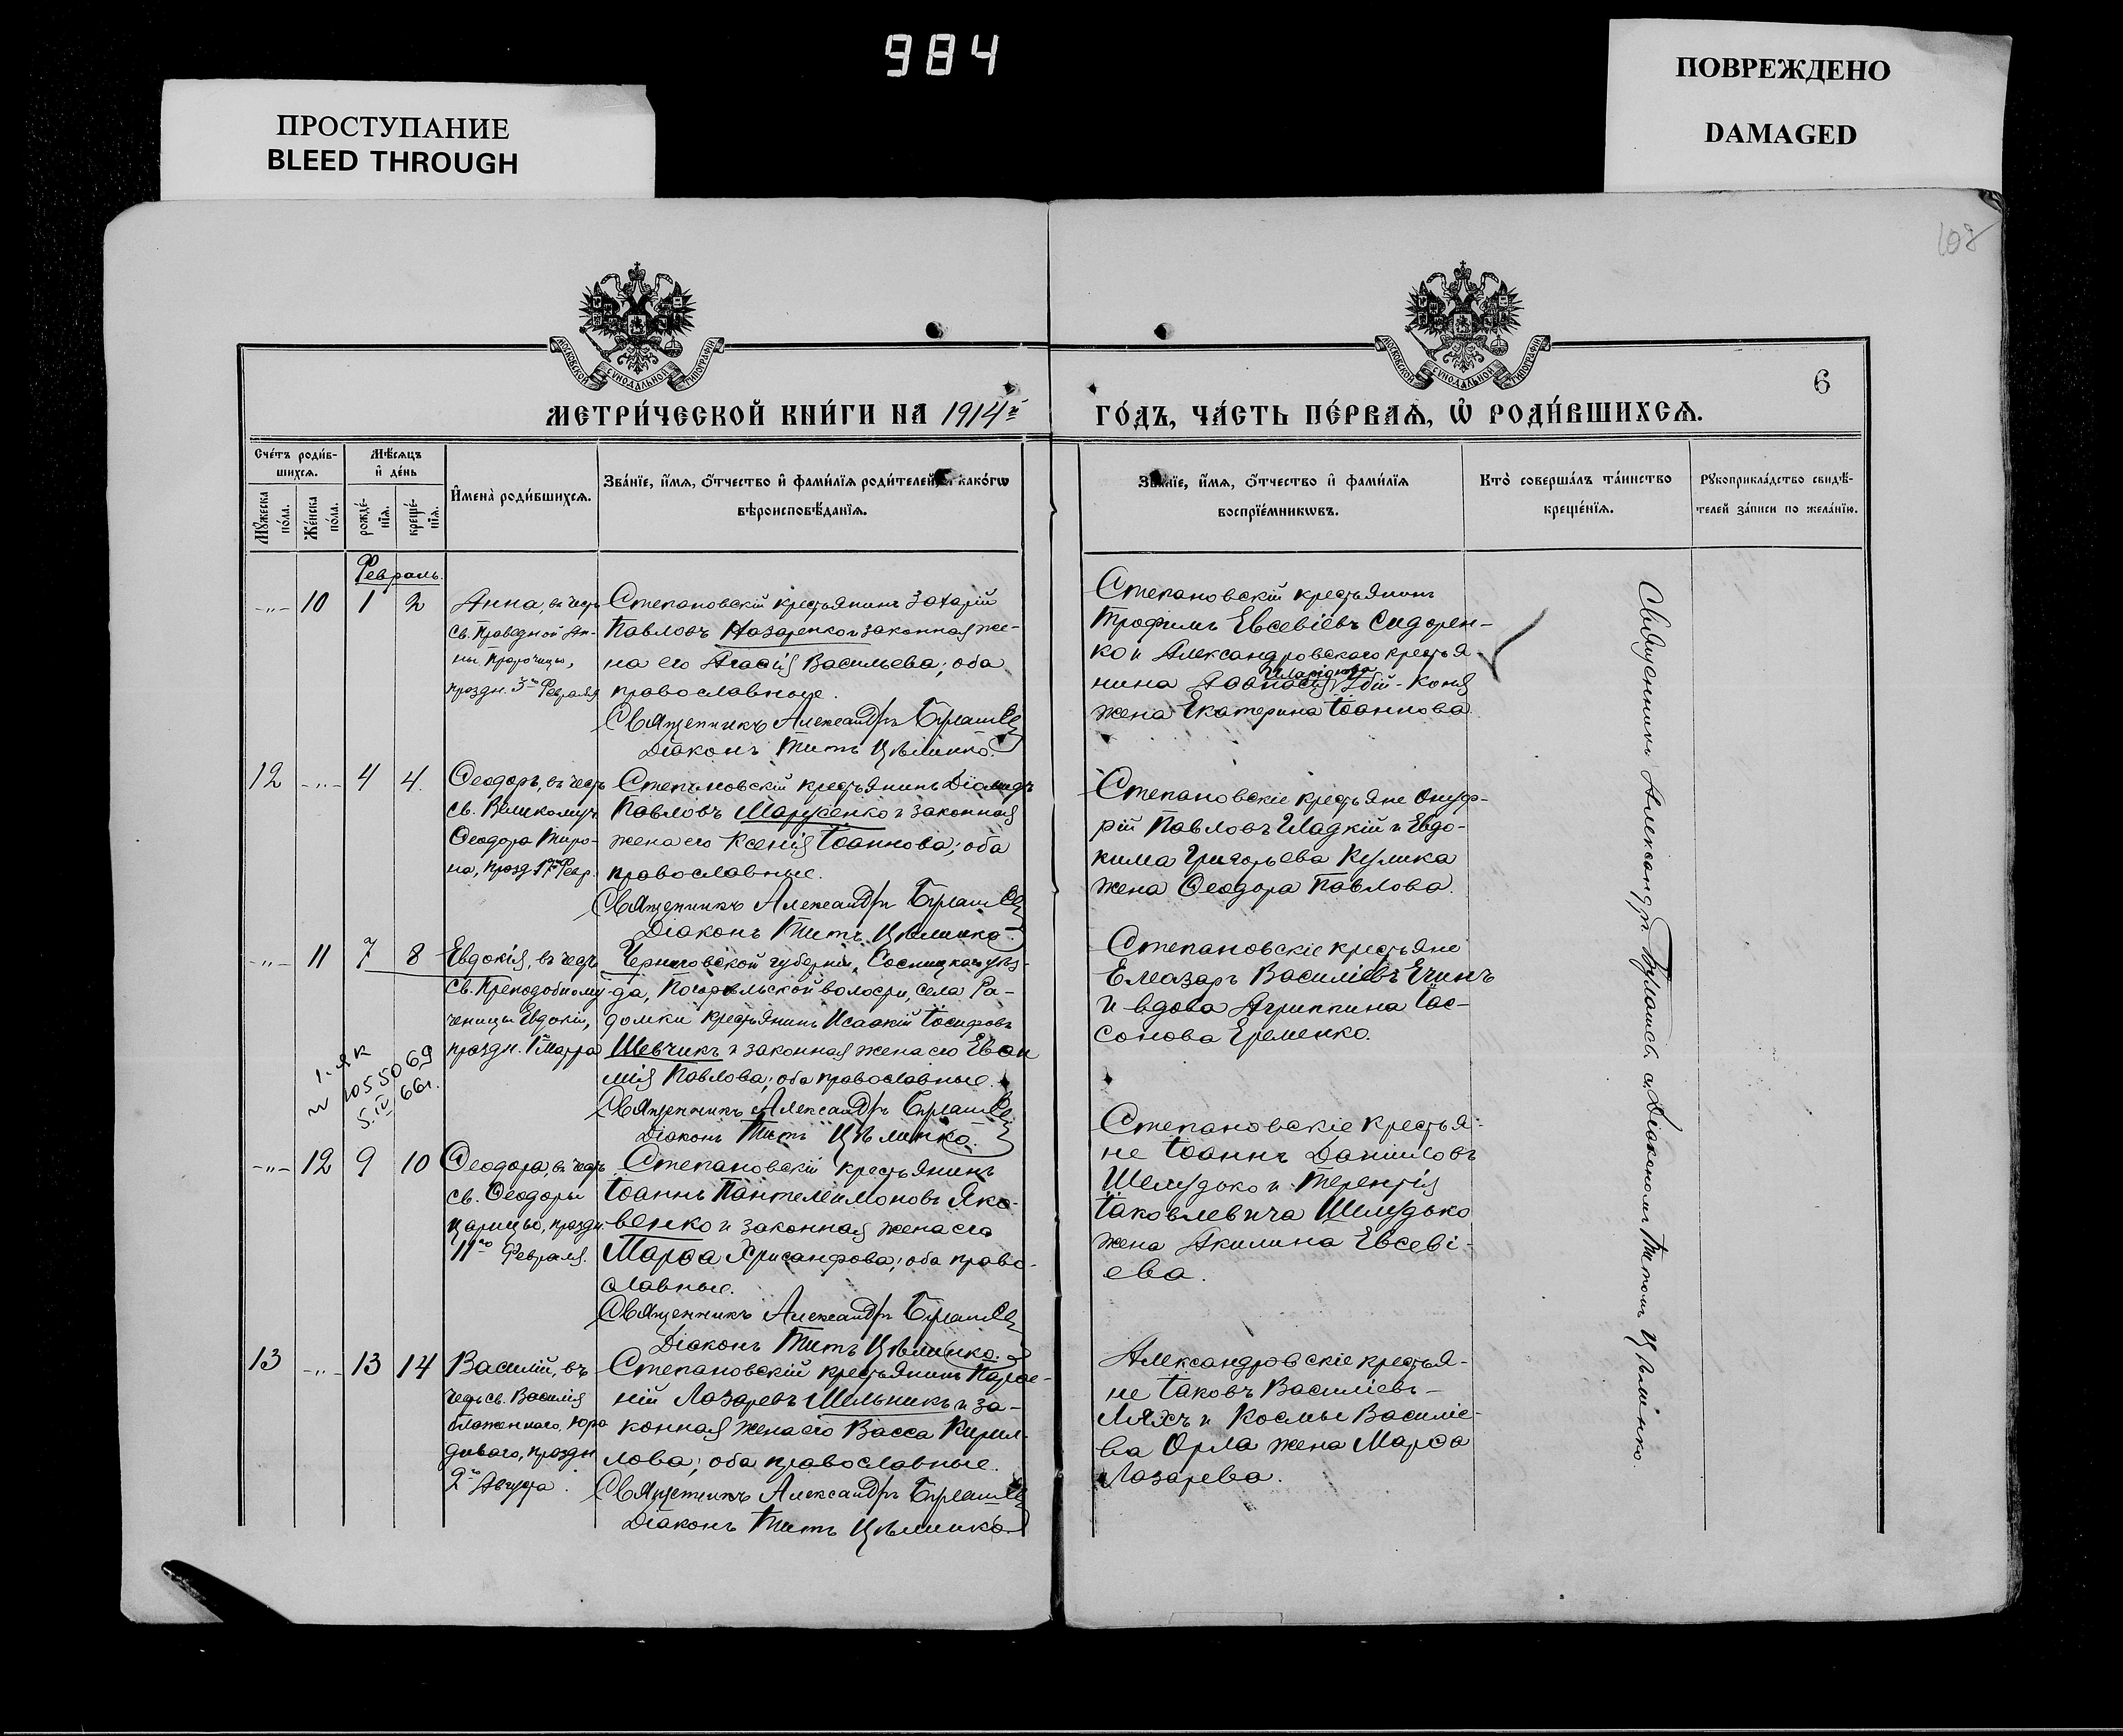 984
ПРОСТУПАНИЕ
BLEED THROUGH
ПОВРЕЖДЕНО
DAMAGED
108
6
МЕТРИ́ЧЕСКОЙ КНИ́ГИ НА 1914й
ГО́ДЪ, ЧА́СТЬ ПЕ́РВАѦ, Ѡ РОДИ́ВШИХСѦ.
МОСКОВСКОЙ СѴНОДАЛЬНОЙ ТИПОГРАФІИ
МОСКОВСКОЙ СѴНОДАЛЬНОЙ ТИПОГРАФІИ
Сче́тъ роди́в-
шихсѧ.
Мꙋжеска по́ла.
Же́нска по́ла.
Мѣ́сѧцъ
и де́нь
рожде́-
нїѧ.
креще́-
нїѧ.
Имена̀ роди́вшихсѧ.
Зва́нїе, и́мѧ, ѻ҆́тчество и фами́лїѧ роди́телей, и како́гѡ
вѣроисповѣ́данїѧ.
Зва́нїе, и́мѧ, ѻ҆́тчество и фами́лїѧ
воспрїе́мникѡвъ.
Кто̀ соверша́лъ та́инство
креще́нїѧ.
Рꙋкоприкла́дство свидѣ́-
телей за́писи по жела́нїю.
Февраль.
-"- 10 1 2
Анна, въ честь
св. Праведной Ан-
ны Пророчицы,
праздн. 3го Февраля
Степановскій крестьянинъ Захарій
Павловъ Назаренко и законная же-
на его Агафія Васильева; оба
православные.
Священникъ Александръ
Діаконъ Титъ Цѣлинко.
Степановскій крестьянинъ
Трофимъ Евсевіевъ Сидорен-
ко и Александровскаго крестья-
нина Афанасія Убій-Коня
жена Екатерина Іоаннова.
12 -"- 4 4.
Ѳеодоръ, въ честь
св. Великомуч.
Ѳеодора Тиро-
на, празд. 17го Февр.
Степановскій крестьянинъ Діомидъ
Павловъ Марусенко и законная
жена его Ксенія Іоаннова; оба
православные.
Священникъ Александръ
Діаконъ Титъ Цѣлинко.
Степановскіе крестьяне Онуф-
рій Павловъ Гладкій и Евдо-
кима Григорьева Кулика
жена Ѳеодора Павлова.
-"- 11 7 8
Евдокія, въ честь
св. Преподобному-
ченицы Евдокіи,
праздн. 1 Марта
Черниговской губерніи, Сосницкаго уѣз-
да, Погорѣльской волости, села Ра-
домки крестьянинъ Исаакій Іосифовъ
Шевчикъ и законная жена его
Павлова; оба православные.
Священникъ Александръ
Діаконъ Титъ Цѣлинко.
Степановскіе крестьяне
Елеазаръ Василіевъ
и вдова Агриппина Іас-
сонова Еременко.
1055069
5.IV 66г.
-"- 12 9 10
Ѳеодора, въ честь
св. Ѳеодоры
царицы, праздн.
11го Февраля.
Степановскій крестьянинъ
Іоаннъ Пантелеимоновъ Яко-
венко и законная жена его
Марѳа Хрисанфова; оба право-
славные.
Священникъ Александръ
Діаконъ Титъ Цѣлинко.
Степановскіе крестья-
не Іоаннъ Даниловъ
Шелудько и Терентія
Іаковлевича Шелудько
жена Акилина Евсеві-
ева.
13 -"- 13 14
Василій, въ
честь св. Василія
блаженнаго, юро-
диваго, праздн.
2го Августа.
Степановскій крестьянинъ Парѳе-
ній Лазаревъ Мельникъ и за-
конная жена его Васса Кирил-
лова; оба православные.
Священникъ Александръ
Діаконъ Титъ Цѣлинко.
Александровскіе крестья-
не Іаковъ Василіевъ
Ляхъ и Космы Василіе-
ва Орла жена Марѳа
Лазарева.
Священникъ Александръ съ Діакономъ Титомъ Цѣлинко.